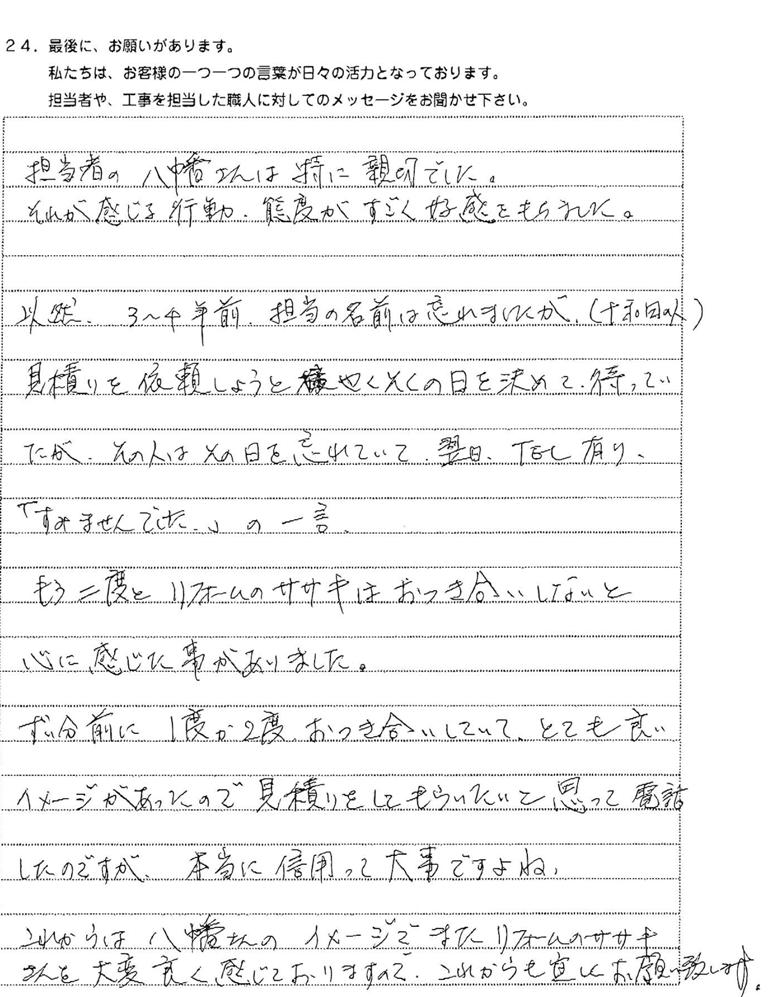 24．最後に、お願いがあります。
私たちは、お客様の一つ一つの言葉が日々の活力となっております。
担当者や、工事を担当した職人に対してのメッセージをお聞かせ下さい。
担当者の八幡さんは特に親切でした。
それが感じる行動、態度がすごく好感をもらえました。
以然、3〜4年前、担当の名前は忘れましたが、（十和田の人）
見積りを依頼しようとやくそくの日を決めて、待ってい
たが、その人はその日を忘れていて、翌日、TEL有り、
「すみませんでした。」の一言、
もう二度とリフォームのササキはおつき合いしないと
心に感じた事がありました。
ずい分前に1度か2度、おつき合いしていて、とても良い
イメージがあったので見積りをしてもらいたいと思って電話
したのですが、本当に信用って大事ですよね、
これからは八幡さんのイメージでまたリフォームのササキ
さんを大変良く感じておりますので、これからも宜しくお願い致します。